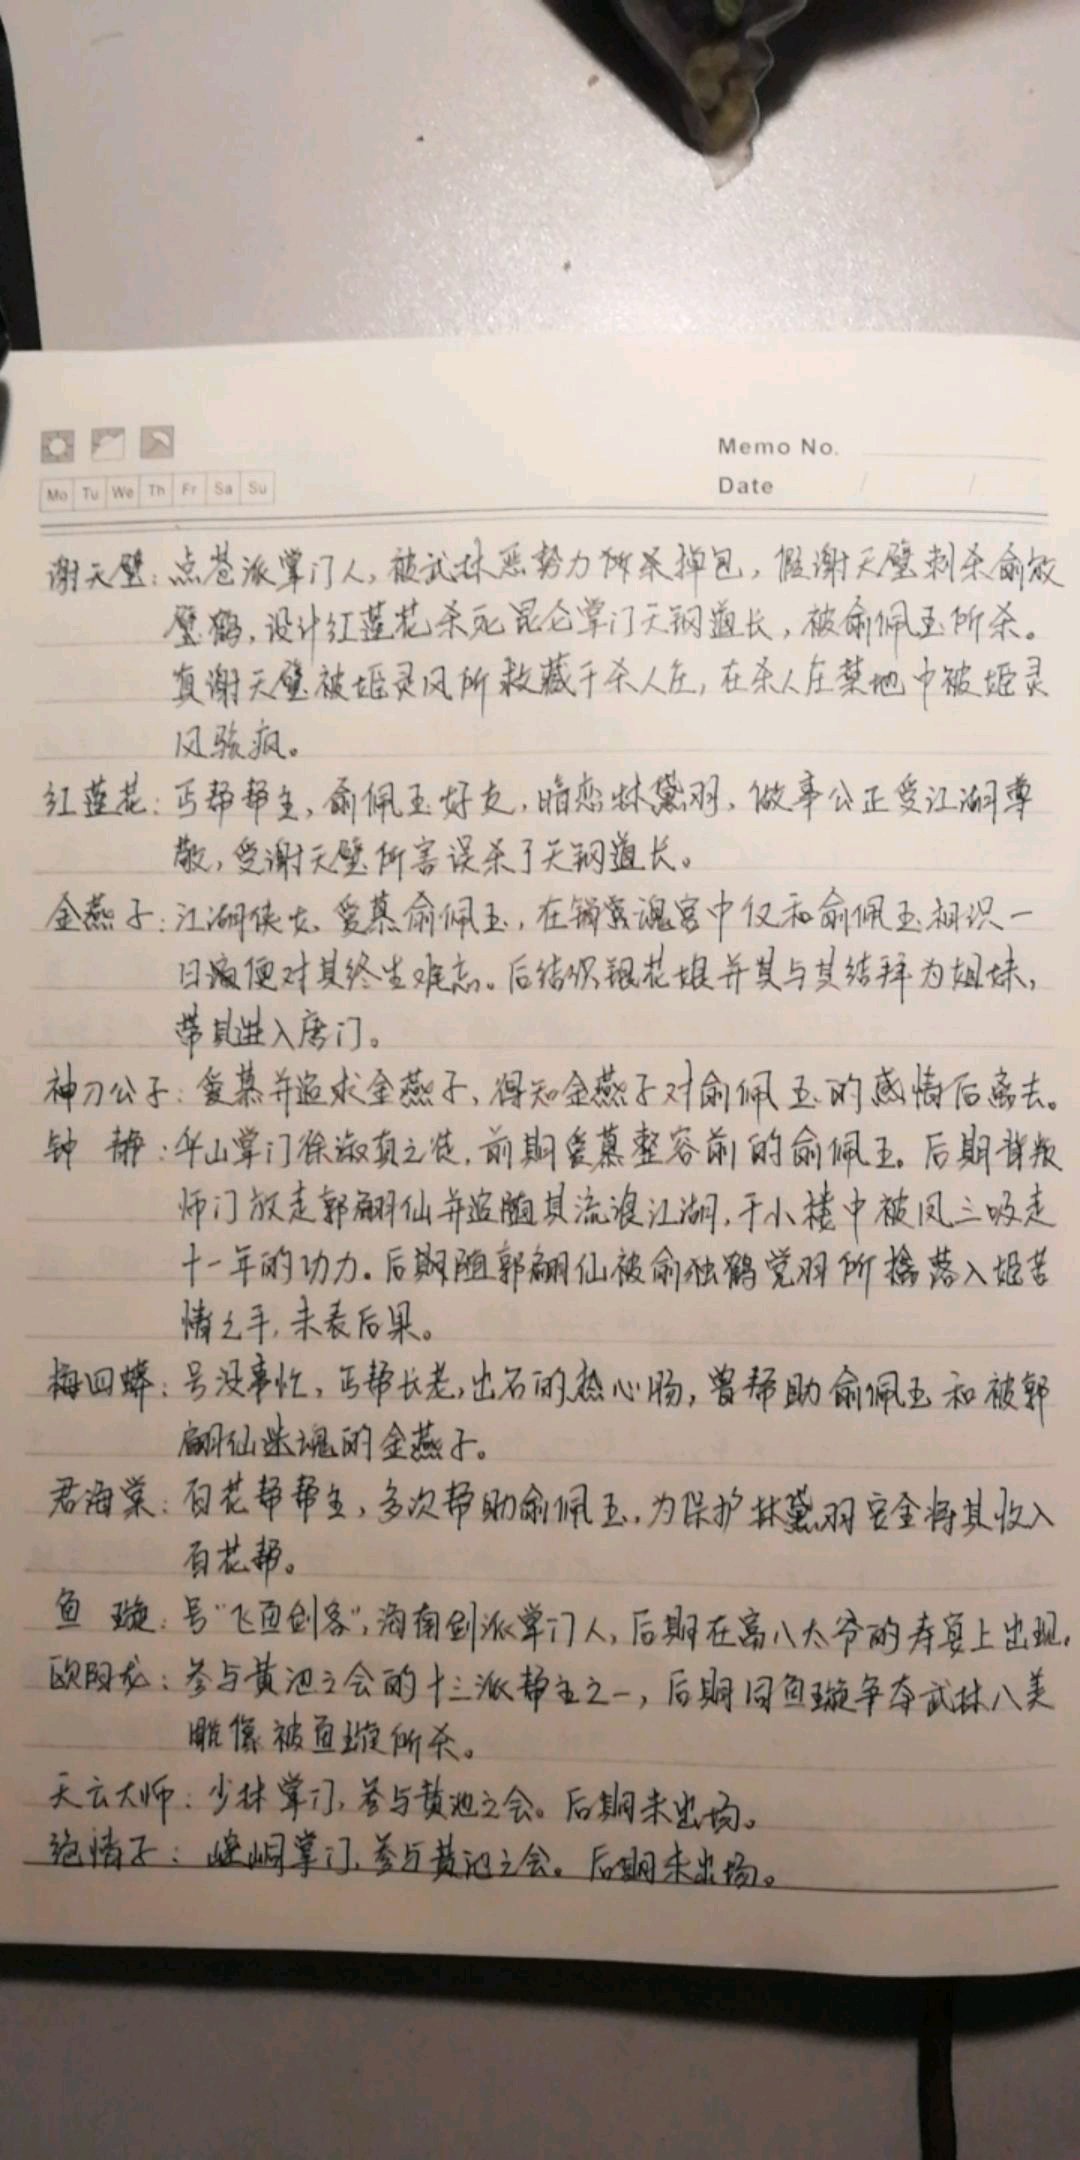 Memo No.
Mo Tu We Th Fr Sa Su
Date / /
谢天璧：点苍派掌门人，被武林恶势力所杀掉包，假谢天璧刺杀俞放
鹤，设计红莲花杀死昆仑掌门天钢道长，被俞佩玉所杀。
真谢天璧被姬灵风所救藏于杀人庄，在杀人庄墓地中被姬灵
风骇疯。
红莲花：丐帮帮主，俞佩玉好友，暗恋林黛羽，做事公正受江湖尊
敬，受谢天璧所害误杀了天钢道长。
金燕子：江湖侠女，爱慕俞佩玉，在销魂宫中仅和俞佩玉相识一
日便对其终生难忘。后结识银花娘并其与其结拜为姐妹，
带其进入唐门。
神刀公子：爱慕并追求金燕子，得知金燕子对俞佩玉的感情后离去。
钟静：华山掌门徐淑真之徒，前期爱慕整容前的俞佩玉。后期背叛
师门放走郭翩仙并追随其流浪江湖，于小楼中被凤三吸走
十一年的功力。后期随郭翩仙被俞独鹤党羽所擒落入姬苦
情之手，未表后果。
梅四蟒：号没事忙，丐帮长老，出名的热心肠，曾帮助俞佩玉和被郭
翩仙迷魂的金燕子。
君海棠：百花帮帮主，多次帮助俞佩玉，为保护林黛羽安全将其收入
百花帮。
鱼璇：号“飞鱼剑客”，海南剑派掌门人，后期在高八太爷的寿宴上出现。
欧阳龙：参与黄池之会的十三派帮主之一，后期因鱼璇争夺武林八美
雕像被鱼璇所杀。
天云大师：少林掌门，参与黄池之会。后期未出场。
绝情子：崆峒掌门，参与黄池之会。后期未出场。